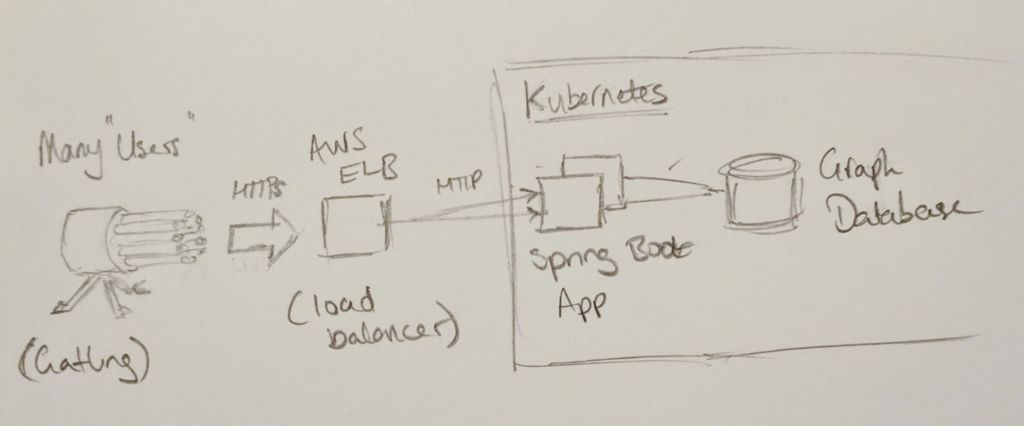 Many "Users"
(Gatling)
HTTPS
AWS
ELB
(load
balancer)
HTTP
Kubernetes
Spring Boot
App
Graph
Database